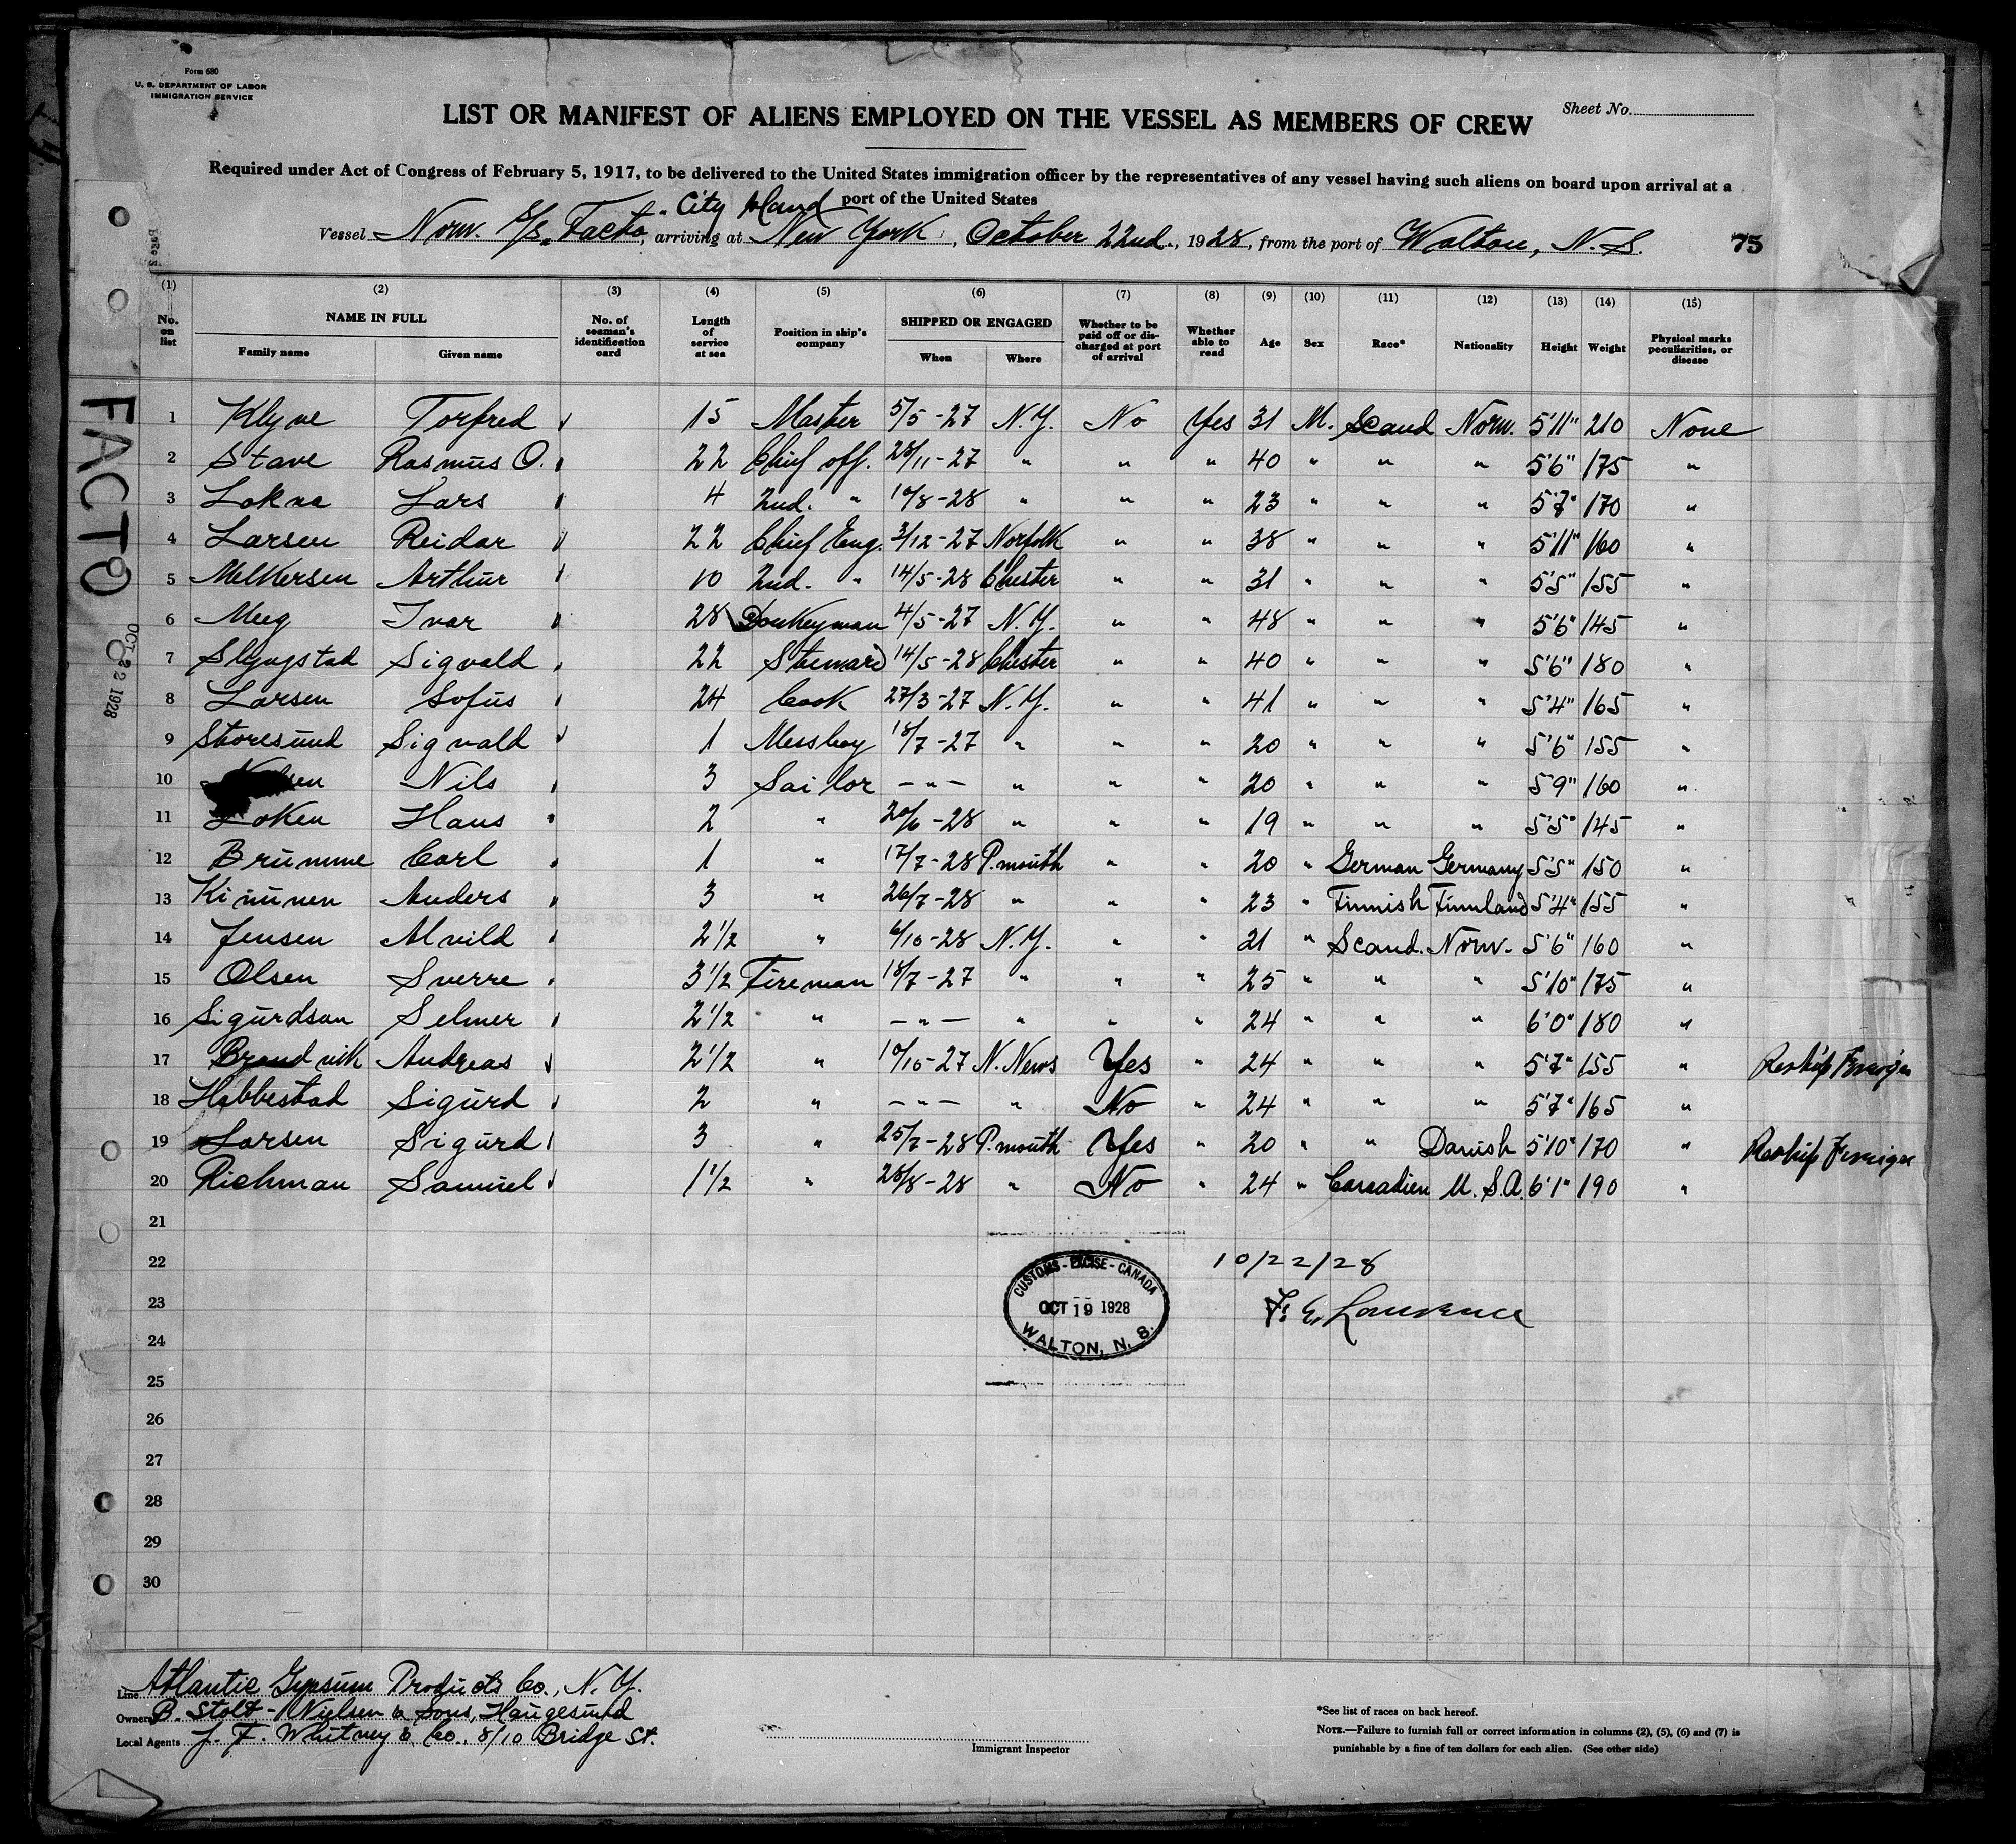 Form 680
U. S. DEPARTMENT OF LABOR
IMMIGRATION SERVICE
Sheet No.
LIST OR MANIFEST OF ALIENS EMPLOYED ON THE VESSEL AS MEMBERS OF CREW
Required under Act of Congress of February 5, 1917, to be delivered to the United States immigration officer by the representatives of any vessel having such aliens on board upon arrival at a
port of the United States
City Island
Vessel Norw. S/S. Facto, arriving at New York, October 22nd., 1928, from the port of Walton, N.S. 75
(1) (2) (3) (4) (5) (6) (7) (8) (9) (10) (11) (12) (13) (14) (15)
No. on list NAME IN FULL Family name Given name No. of seaman's identification card Length of service at sea Position in ship's company SHIPPED OR ENGAGED When Where Whether to be paid off or discharged at port of arrival Whether able to read Age Sex Race* Nationality Height Weight Physical marks peculiarities, or disease
1 Klyve Torfred 15 Master 5/5-27 N.Y. No Yes 31 M. Scand Norw. 5'11" 210 None
2 Stave Rasmus O. 22 Chief off. 28/11-27 " " " 40 " " " 5'6" 175 "
3 Lars 4 2nd. " 10/8-28 " " " 23 " " " 5'7" 170 "
4 Larsen Reidar 22 Chief Eng. 3/12-27 Norfolk " " 38 " " " 5'11" 160 "
5 Melkersen Arthur 10 2nd. " 14/5-28 Chester " " 31 " " " 5'5" 155 "
6 Meeg Ivar 28 Donkeyman 4/5-27 N.Y. " " 48 " " " 5'6" 145 "
7 Slyngstad Sigvald 22 Steward 14/5-28 Chester " " 40 " " " 5'6" 180 "
8 Larsen Sofus 24 Cook 27/3-27 N.Y. " " 41 " " " 5'4" 165 "
9 Storesund Sigvald 1 Messboy 18/7-27 " " " 20 " " " 5'6" 155 "
10 Nils 3 Sailor -"- " " " 20 " " " 5'9" 160 "
11 Loken Hans 2 " 20/6-28 " " " 19 " " " 5'5" 145 "
12 Brumme Carl 1 " 17/7-28 P.mouth " " 20 " German Germany 5'5" 150 "
13 Kinunen Anders 3 " 26/7-28 " " " 23 " Finnish Finnland 5'4" 155 "
14 Jensen Alvild 2 1/2 " 6/10-28 N.Y. " " 21 " Scand. Norw. 5'6" 160 "
15 Olsen Sverre 3 1/2 Fireman 18/7-27 " " " 25 " " " 5'10" 175 "
16 Sigurdson Selmer 2 1/2 " -"- " " " 24 " " " 6'0" 180 "
17 Brandvik Andreas 2 1/2 " 10/10-27 N.News Yes " 24 " " " 5'7" 155 " Reship Foreign
18 Habbestad Sigurd 2 " -"- " No " 24 " " " 5'7" 165 "
19 Larsen Sigurd 3 " 25/7-28 P.mouth Yes " 20 " " Danish 5'10" 170 " Reship Foreign
20 Richman Samuel 1 1/2 " 28/8-28 " No " 24 " Cacadien U.S.A. 6'1" 190 "
21
22 10/22/28
23 F. E. Lawrence
24
25
26
27
28
29
30
CUSTOMS-EXCISE-CANADA
OCT 19 1928
WALTON, N. S.
FACTO
OCT 22 1928
Line Atlantic Gypsum Products Co., N.Y.
Owners B. Stolt-Nielsen & Sons, Haugesund
Local Agents J. F. Whitney & Co., 8/10 Bridge St.
Immigrant Inspector
*See list of races on back hereof.
NOTE.—Failure to furnish full or correct information in columns (2), (5), (6) and (7) is
punishable by a fine of ten dollars for each alien. (See other side)